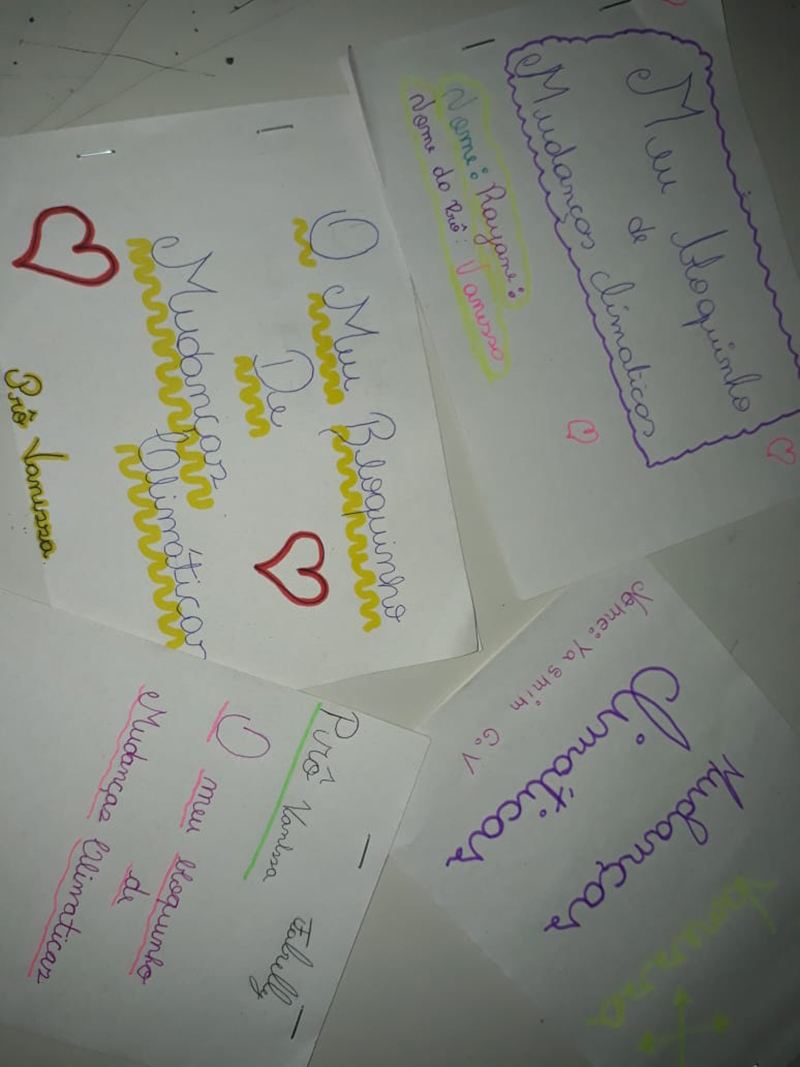 Meu bloquinho
de
Mudanças climaticas
Nome: Rayane:
Nome do Prô: Vanessa
O Meu Bloquinho
De
Mudanças
Climáticas
Prô Vanessa
Nome: Yasmim G.V
Mudanças
Climáticas
Vanessa
Prô Vanessa
O meu bloquinho
de
Mudanças Climaticas